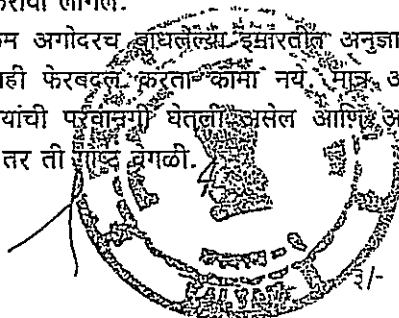 करावा लागेल.
कम अगोदरच बांधलेल्या इमारतीत अनुज्ञा
ाही फेरबदल करता कामा नये. मात्र अ
यांची परवानगी घेतली असेल आणि अ
तर ती गोष्ट वेगळी.
३/-